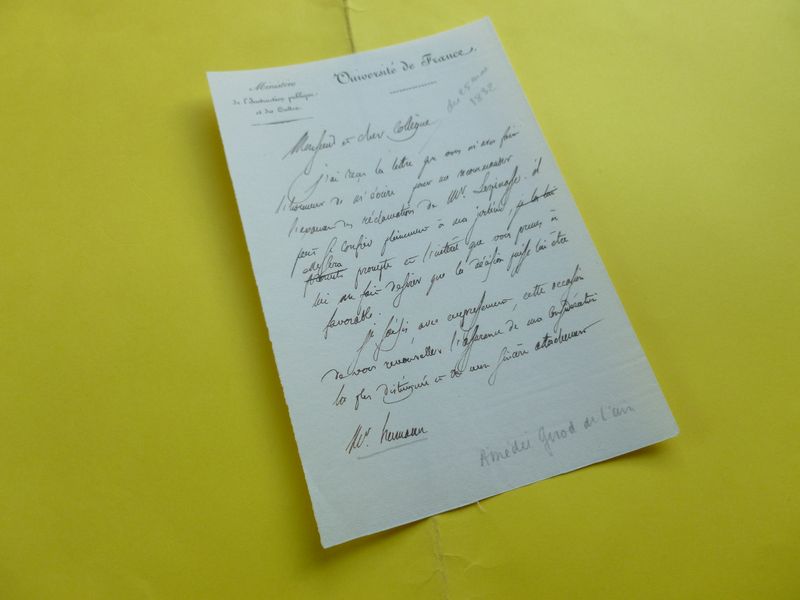 Université de France.
Ministère
de l'Instruction publique
et des Cultes.
du 25 mai
1832
Monsieur et cher Collègue
J'ai reçu la lettre que vous m'avez fait
l'honneur de m'écrire pour me recommander
la réclamation de Mr.
peut se confier pleinement à ma justice, je la lui
elle sera prompte et l'intérêt que vous prenez à
lui me fait désirer que la décision puisse lui être
favorable.
Je saisis, avec empressement, cette occasion
de vous renouveller l'assurance de ma considération
la plus distinguée et de mon sincère attachement
Mr. humann
Amédée Girod de l'ain